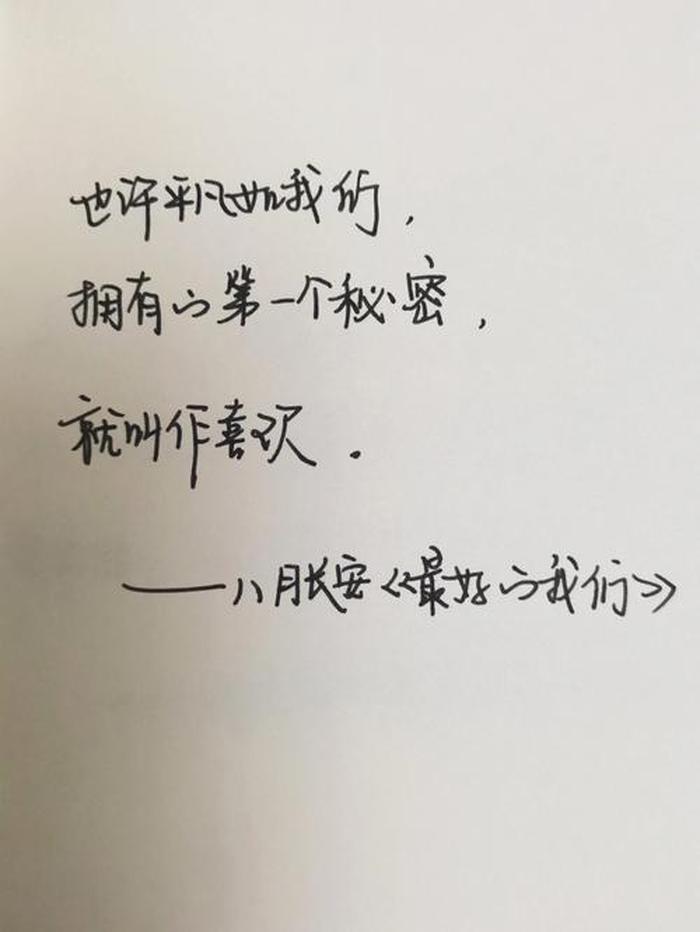 也许平凡如我们，
拥有的第一个秘密，
就叫作喜欢．
——八月长安《最好的我们》